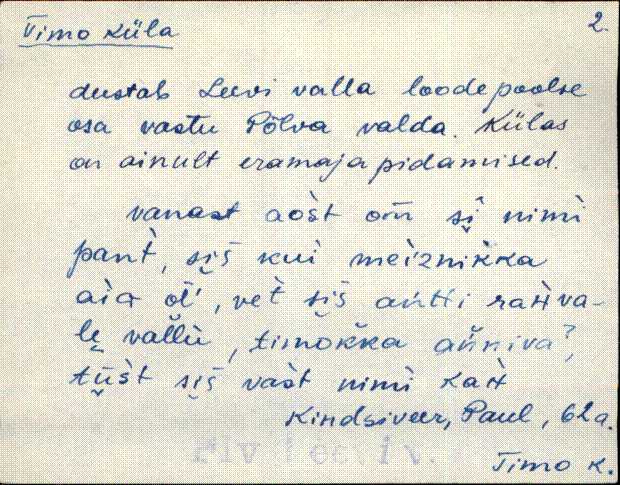 Timo küla
2.
dustab Leevi valla loodepoolse
osa vastu Põlva valda. Külas
on ainult eramajapidamised.
vanast aośt om śḭ nimi
pańt, śiš kui meiznikka
aia ol̄', vet śiš anti rahva-
le vallu, timokka anniva?,
tṵ̄st śiš vast nimi kah
Kindsiveer, Paul, 62 a.
Timo k.